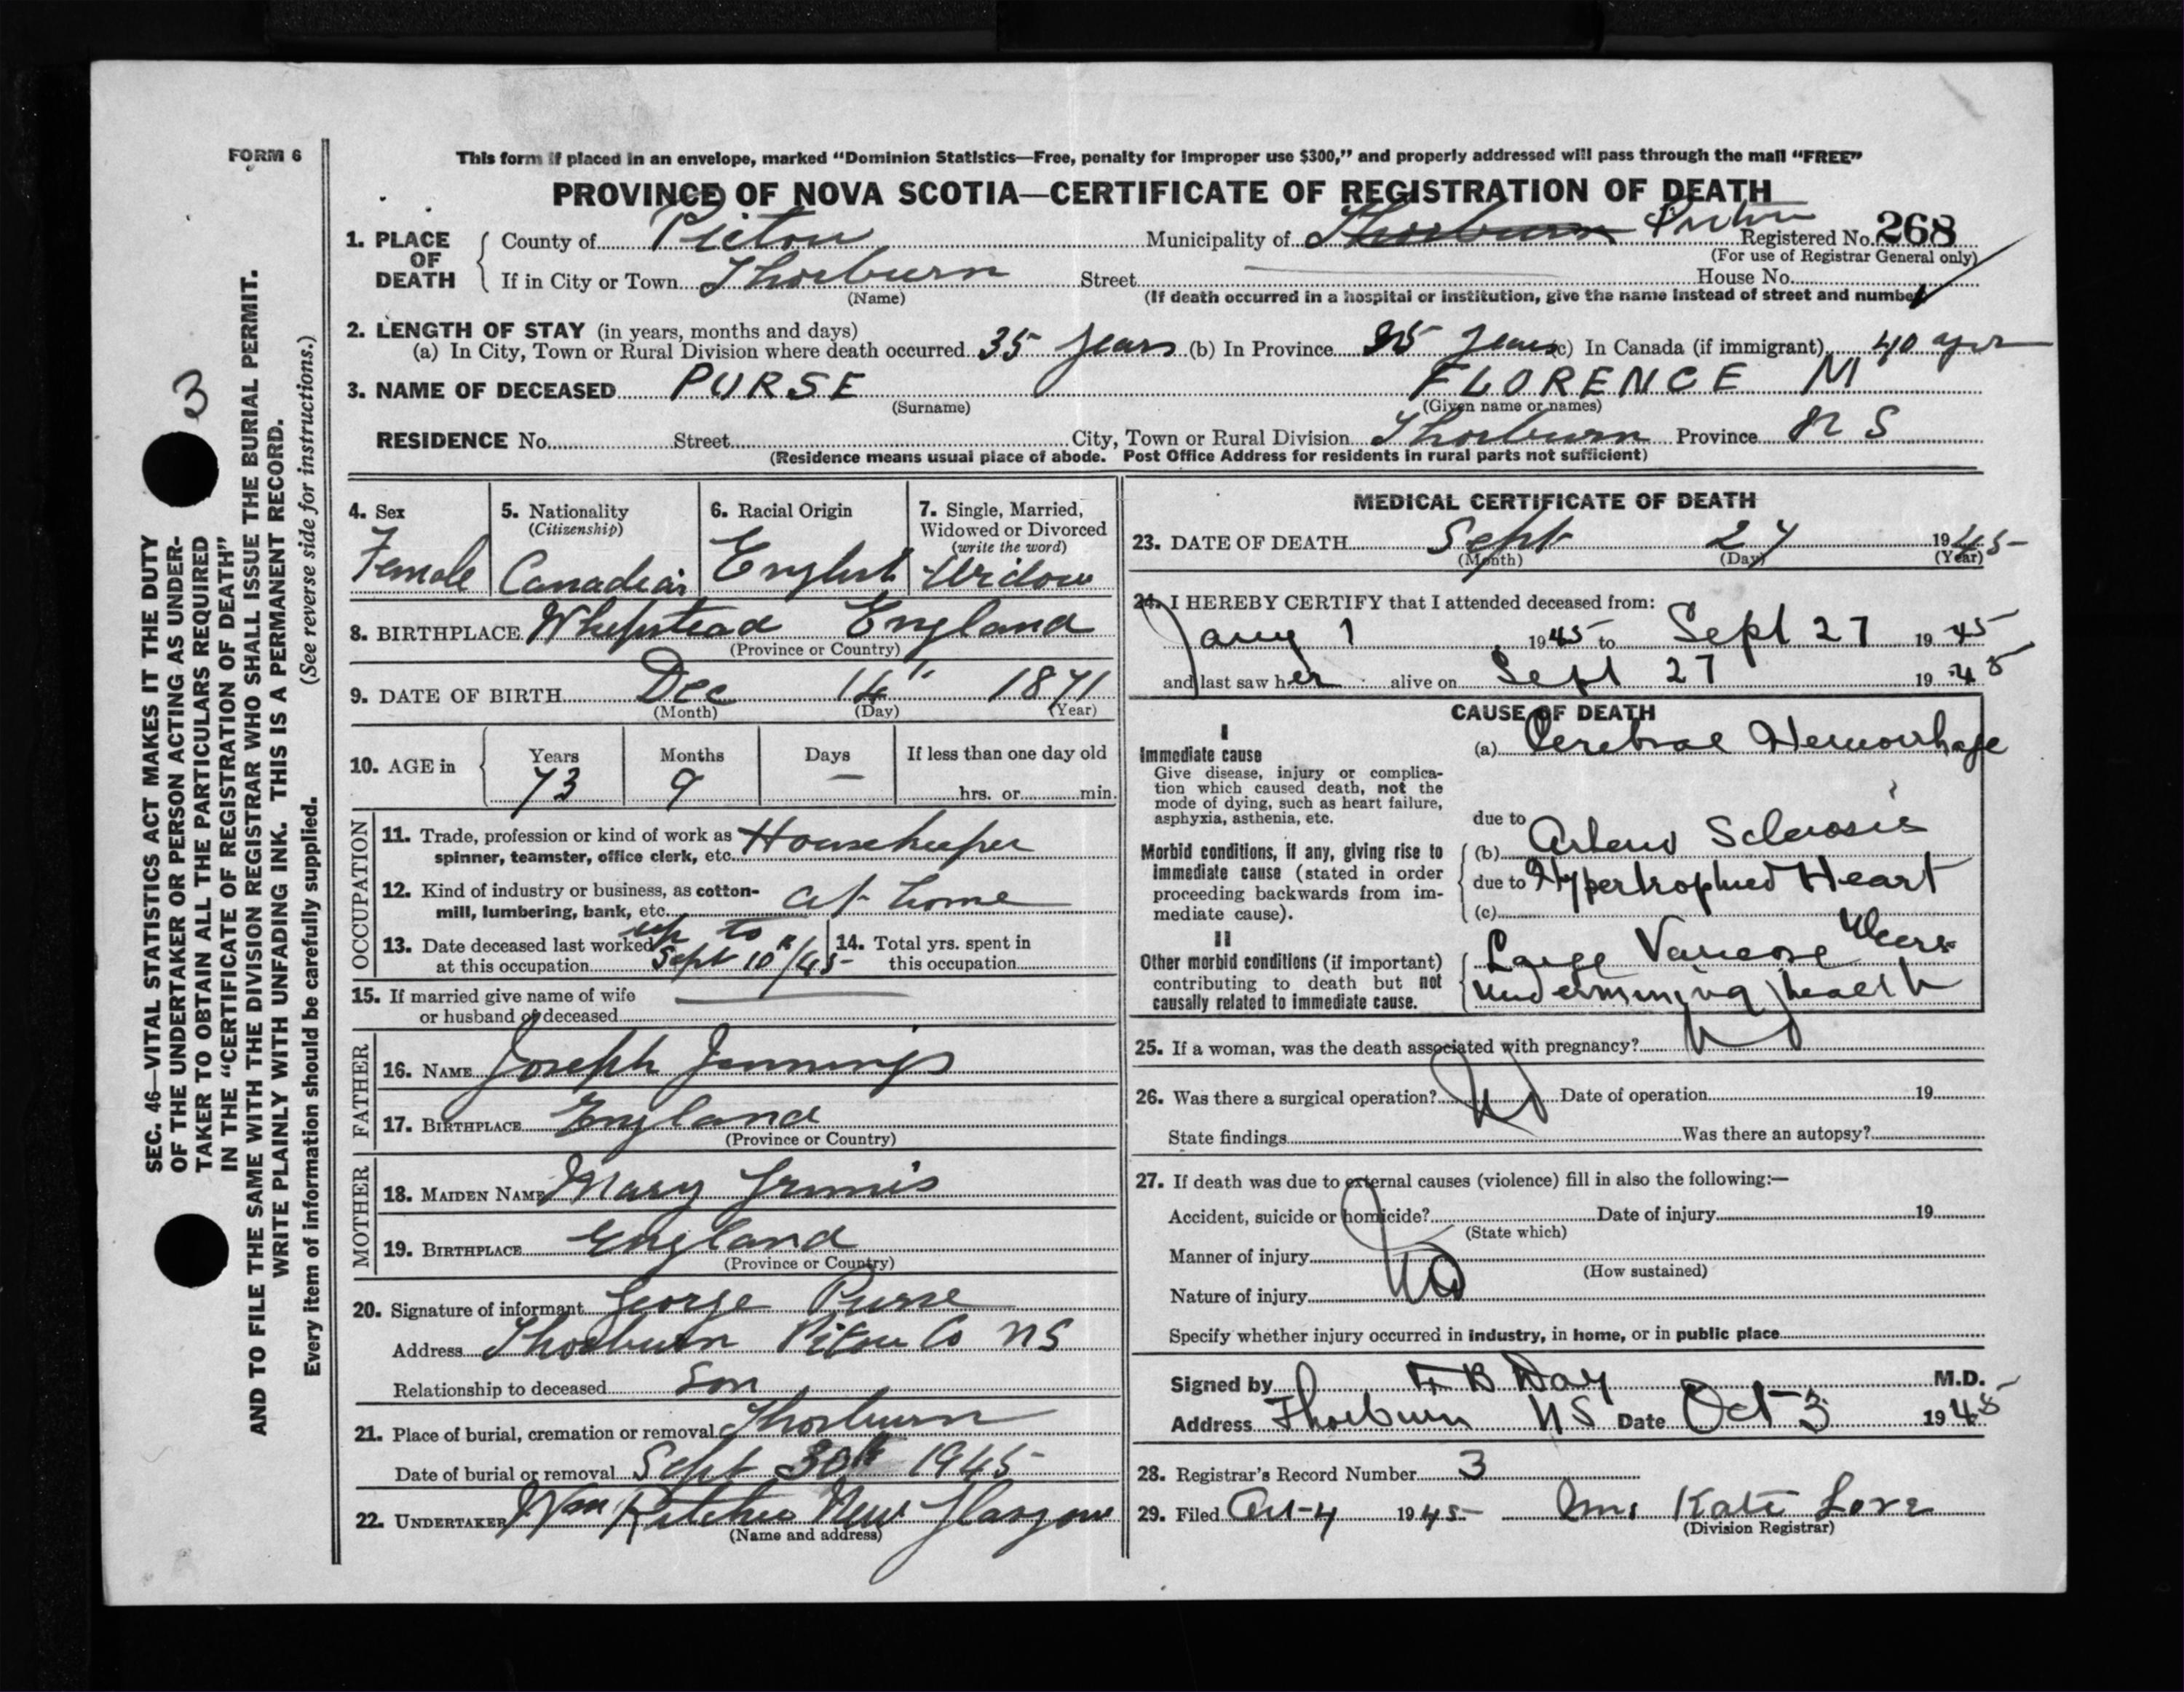 FORM 6
This form if placed in an envelope, marked "Dominion Statistics—Free, penalty for improper use $300," and properly addressed will pass through the mail "FREE"
PROVINCE OF NOVA SCOTIA—CERTIFICATE OF REGISTRATION OF DEATH
1. PLACE OF DEATH
County of Pictou Municipality of Thorburn Pictou Registered No. 268
(For use of Registrar General only)
If in City or Town Thorburn Street House No.
(Name) (If death occurred in a hospital or institution, give the name instead of street and number)
2. LENGTH OF STAY (in years, months and days)
(a) In City, Town or Rural Division where death occurred 35 years (b) In Province 35 years (c) In Canada (if immigrant) 40 yrs
3. NAME OF DECEASED PURSE FLORENCE M
(Surname) (Given name or names)
RESIDENCE No. Street City, Town or Rural Division Thorburn Province N S
(Residence means usual place of abode. Post Office Address for residents in rural parts not sufficient)
4. Sex
Female
5. Nationality
(Citizenship)
Canadian
6. Racial Origin
English
7. Single, Married,
Widowed or Divorced
(write the word)
Widow
8. BIRTHPLACE Whepstead England
(Province or Country)
9. DATE OF BIRTH Dec 14" 1871
(Month) (Day) (Year)
10. AGE in Years Months Days If less than one day old
73 9 — hrs. or min.
OCCUPATION
11. Trade, profession or kind of work as
spinner, teamster, office clerk, etc. Housekeeper
12. Kind of industry or business, as cotton-
mill, lumbering, bank, etc. at home
13. Date deceased last worked up to
at this occupation Sept 10th/45
14. Total yrs. spent in
this occupation
15. If married give name of wife
or husband of deceased
FATHER
16. NAME Joseph Jennings
17. BIRTHPLACE England
(Province or Country)
MOTHER
18. MAIDEN NAME Mary
19. BIRTHPLACE England
(Province or Country)
20. Signature of informant George Purse
Address Thorburn Pictou Co NS
Relationship to deceased Son
21. Place of burial, cremation or removal Thorburn
Date of burial or removal Sept 30th 1945
22. UNDERTAKER Wm Ritchie New Glasgow
(Name and address)
MEDICAL CERTIFICATE OF DEATH
23. DATE OF DEATH Sept 27 1945
(Month) (Day) (Year)
24. I HEREBY CERTIFY that I attended deceased from:
Jany 1 1945 to Sept 27 1945
and last saw her alive on Sept 27 1945
CAUSE OF DEATH
I
Immediate cause
Give disease, injury or complica-
tion which caused death, not the
mode of dying, such as heart failure,
asphyxia, asthenia, etc.
(a) Cerebral Hemorrhage
due to
Morbid conditions, if any, giving rise to
immediate cause (stated in order
proceeding backwards from im-
mediate cause).
(b) Arterio Sclerosis
due to Hypertrophied Heart
(c)
II
Other morbid conditions (if important)
contributing to death but not
causally related to immediate cause.
Large Varicose Ulcers
undermining health
25. If a woman, was the death associated with pregnancy? No
26. Was there a surgical operation? No Date of operation 19
State findings Was there an autopsy?
27. If death was due to external causes (violence) fill in also the following:—
Accident, suicide or homicide? Date of injury 19
(State which)
Manner of injury No
(How sustained)
Nature of injury
Specify whether injury occurred in industry, in home, or in public place
Signed by B Day M.D.
Address Thorburn NS Date Oct 3 1945
28. Registrar's Record Number 3
29. Filed Oct 4 1945 Mrs Kate Love
(Division Registrar)
3
SEC. 46—VITAL STATISTICS ACT MAKES IT THE DUTY
OF THE UNDERTAKER OR PERSON ACTING AS UNDER-
TAKER TO OBTAIN ALL THE PARTICULARS REQUIRED
IN THE "CERTIFICATE OF REGISTRATION OF DEATH"
AND TO FILE THE SAME WITH THE DIVISION REGISTRAR WHO SHALL ISSUE THE BURIAL PERMIT.
WRITE PLAINLY WITH UNFADING INK. THIS IS A PERMANENT RECORD.
Every item of information should be carefully supplied. (See reverse side for instructions.)